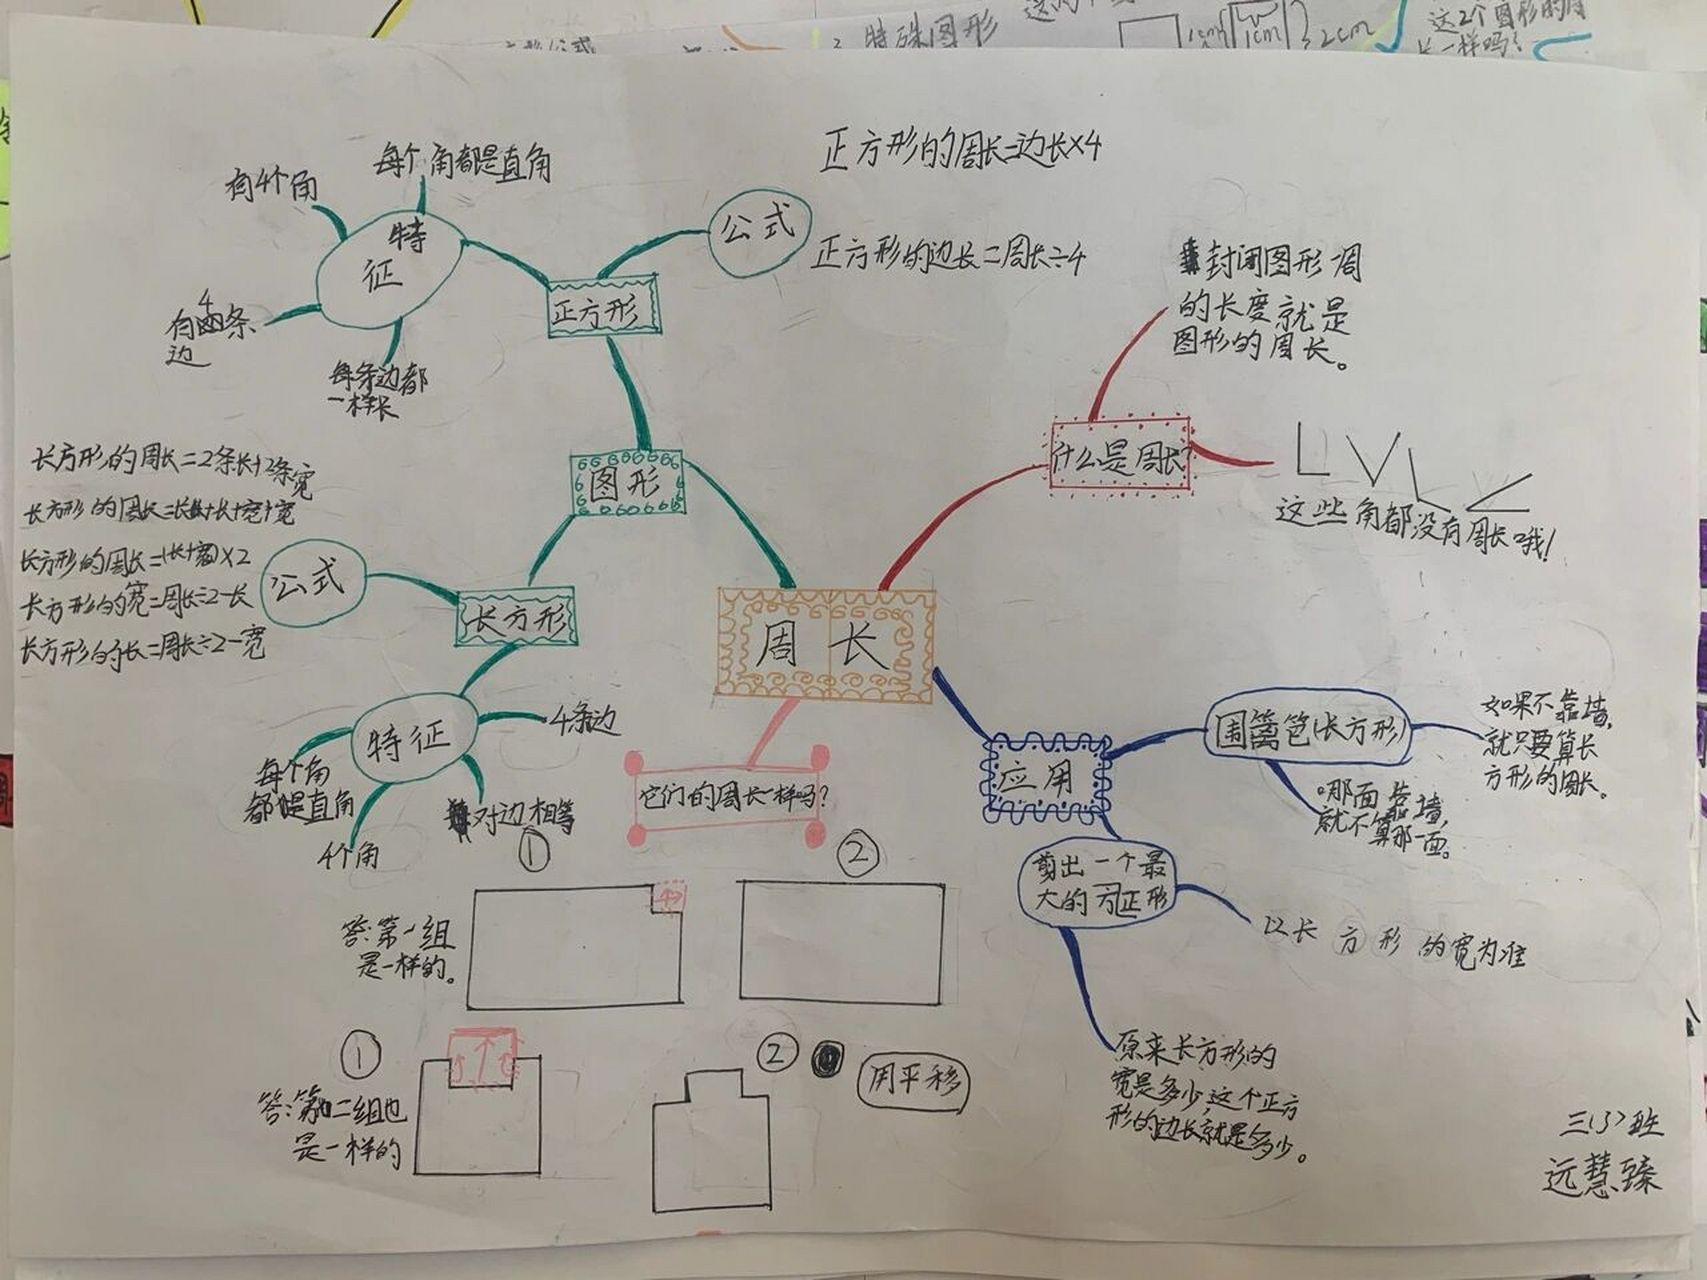 2. 特殊图形
1cm
1cm
2cm
这2个图形的周
长一样吗?
正方形的周长=边长×4
每个角都是直角
有4个角
特
征
公式
正方形的边长=周长÷4
封闭图形周
的长度就是
图形的周长。
有4条
边
正方形
每条边都
一样长
什么是周长?
这些角都没有周长哦!
图形
长方形的周长=2条长+2条宽
长方形的周长=长+长+宽+宽
长方形的周长=(长+宽)×2
长方形的宽=周长÷2-长
长方形的长=周长÷2-宽
公式
长方形
周长
特征
4条边
每个角
都是直角
4个角
对边相等
它们的周长一样吗?
应用
围篱笆(长方形)
如果不靠墙,
就只要算长
方形的周长。
哪面靠墙,
就不算那一面。
剪出一个最
大的正方形
以长方形的宽为准
原来长方形的
宽是多少,这个正方
形的边长就是多少。
①
②
答:第一组
是一样的。
①
②
用平移
答:第二组也
是一样的
三(3)班
远慧臻